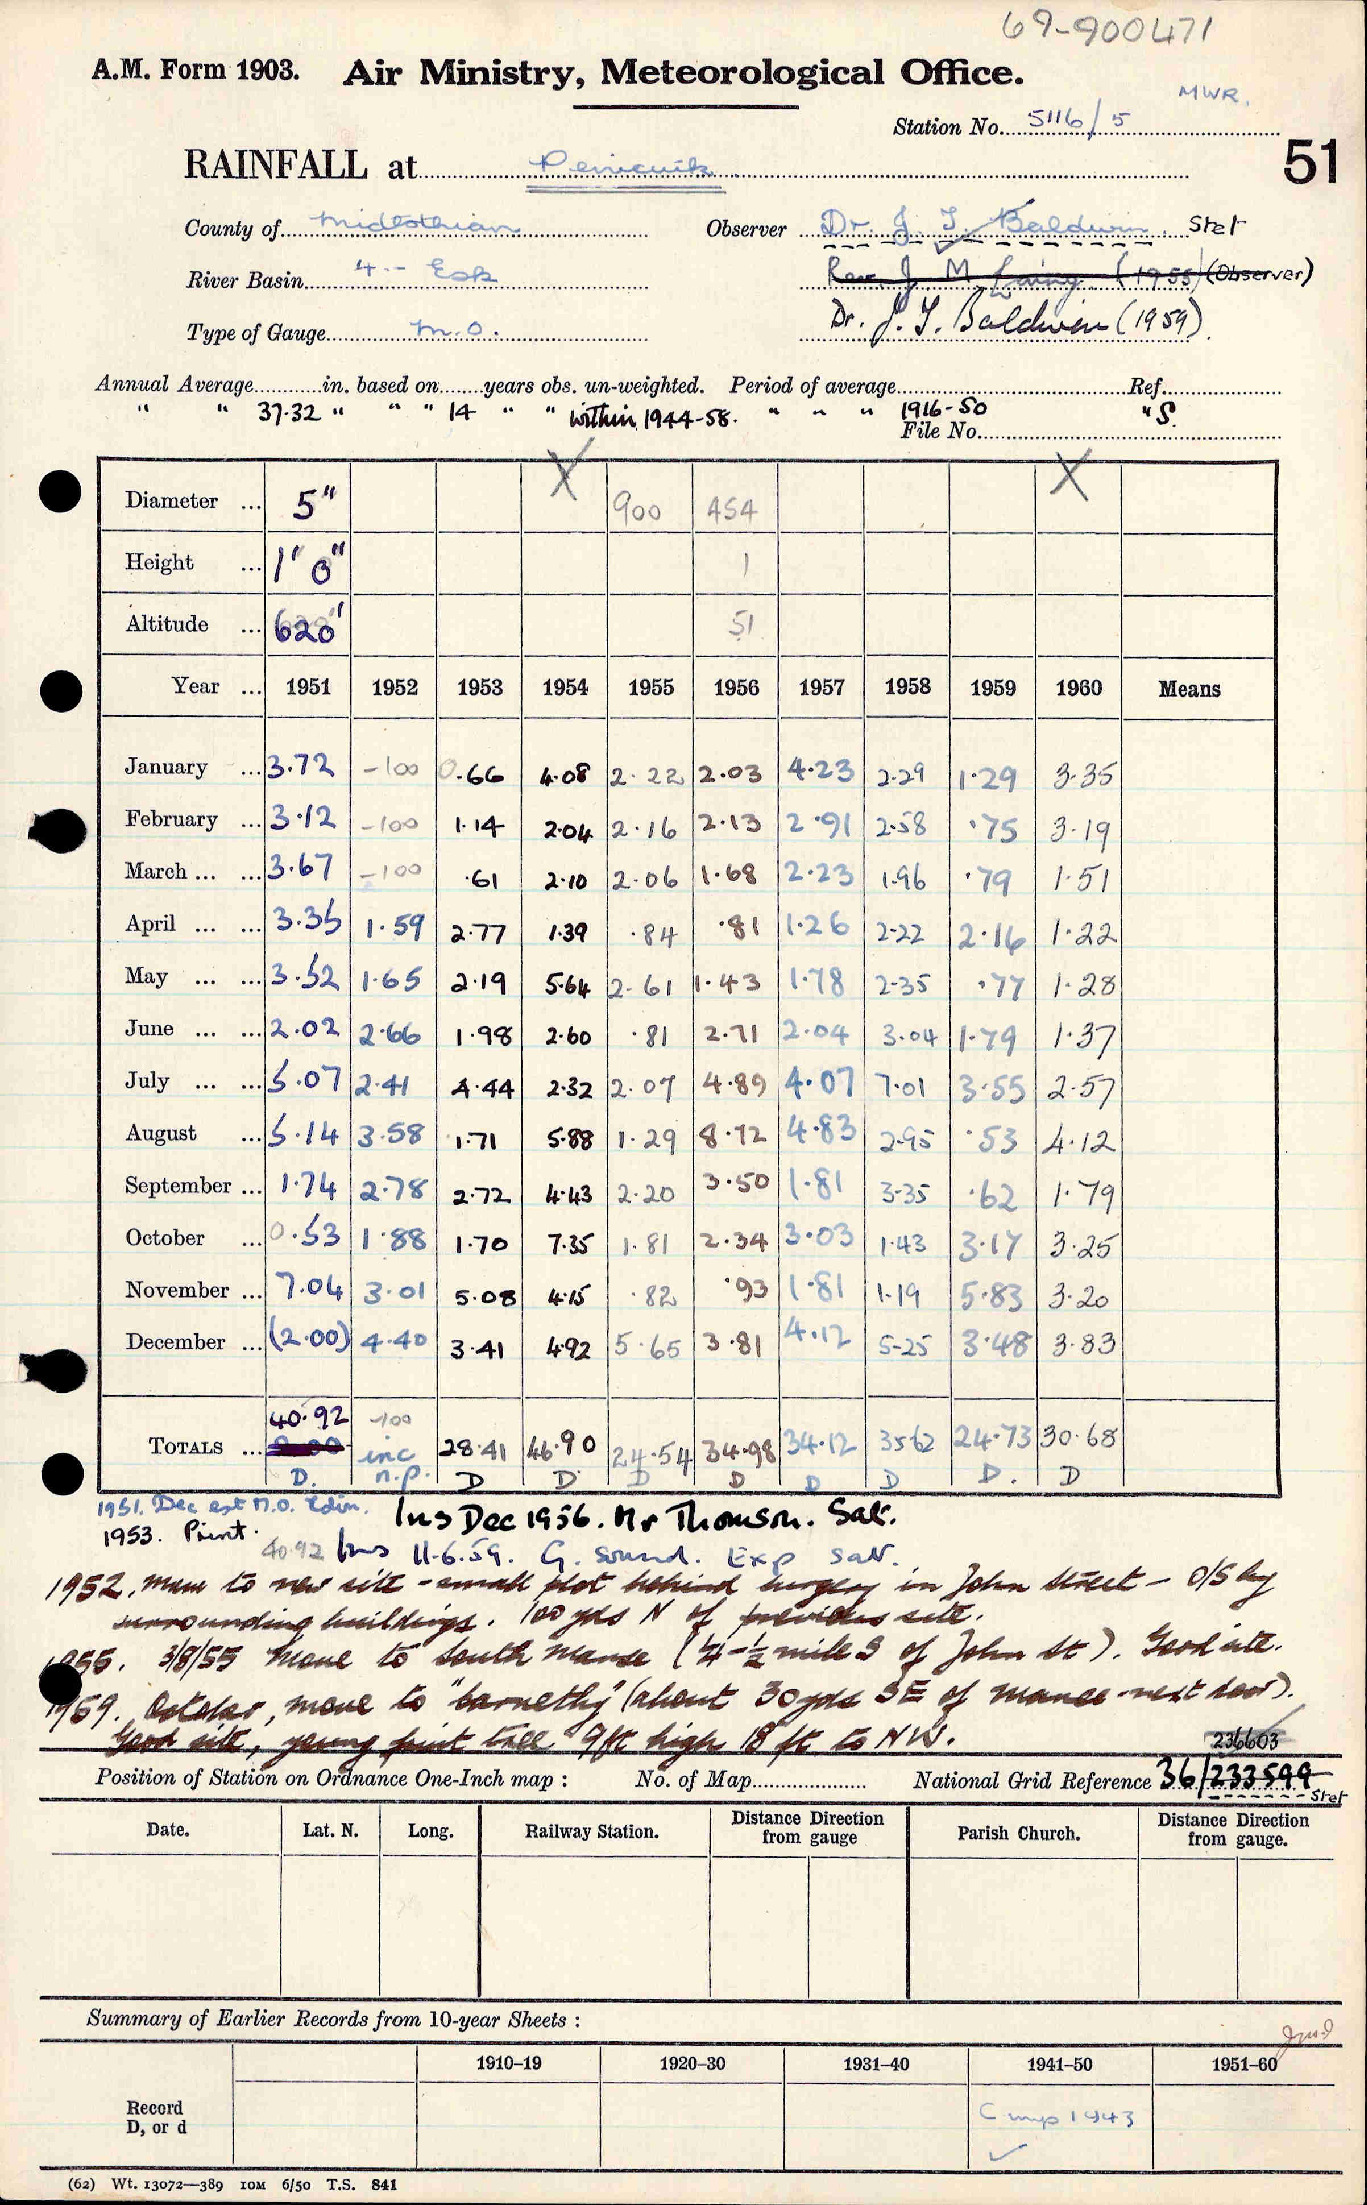 69-900471
A.M. Form 1903. Air Ministry, Meteorological Office.
MWR.
Station No. 5116/5
51
RAINFALL at Penicuik
County of Midlothian Observer Dr. J. T. Baldwin. Stet
River Basin 4 - Esk Rev. J M Laing (1955) (Observer)
Type of Gauge M.O. Dr. J. T. Baldwin (1959)
Annual Average in. based on years obs. un-weighted. Period of average Ref.
" " 37.32 " " " 14 " " within 1944-58. " " " 1916-50 "S.
File No.
Diameter ... 5" 900 454
Height ... 1' 0" 1
Altitude ... 620' 51
Year ... 1951 1952 1953 1954 1955 1956 1957 1958 1959 1960 Means
January ... 3.72 -100 0.66 4.08 2.22 2.03 4.23 2.29 1.29 3.35
February ... 3.12 -100 1.14 2.04 2.16 2.13 2.91 2.58 .75 3.19
March ... ... 3.67 -100 .61 2.10 2.06 1.68 2.23 1.96 .79 1.51
April ... ... 3.35 1.59 2.77 1.39 .84 .81 1.26 2.22 2.16 1.22
May ... ... 3.52 1.65 2.19 5.64 2.61 1.43 1.78 2.35 .77 1.28
June ... ... 2.02 2.66 1.98 2.60 .81 2.71 2.04 3.04 1.79 1.37
July ... ... 5.07 2.41 4.44 2.32 2.07 4.89 4.07 7.01 3.55 2.57
August ... 5.14 3.58 1.71 5.88 1.29 8.72 4.83 2.95 .53 4.12
September ... 1.74 2.78 2.72 4.43 2.20 3.50 1.81 3.35 .62 1.79
October ... 0.53 1.88 1.70 7.35 1.81 2.34 3.03 1.43 3.17 3.25
November ... 7.04 3.01 5.08 4.15 .82 .93 1.81 1.19 5.83 3.20
December ... (2.00) 4.40 3.41 4.92 5.65 3.81 4.12 5.25 3.48 3.83
40.92 -100
TOTALS ... inc 28.41 46.90 24.54 34.98 34.12 35.62 24.73 30.68
D. n.p. D D D D D D D. D
1951. Dec est M.O. Edin. Ins Dec 1956. Mr Thomson. Sat.
1953. Print. 40.92 Ins 11.6.59. G. Sound. Exp sat.
1952. move to new site - small plot behind surgery in John Street - O/S by
surrounding buildings. 100 yds N of previous site.
1955. 3/8/55 Move to South Manse (¼-½ mile S of John St). Good site.
1959. October, move to "Carnethy" (about 30 yds SE of Manse - next door).
Good site, young fruit tree 9ft high 18 ft to NW.
236603
Position of Station on Ordnance One-Inch map : No. of Map National Grid Reference 36/233599
Stet
Date. Lat. N. Long. Railway Station. Distance from gauge Direction Parish Church. Distance from gauge. Direction
Summary of Earlier Records from 10-year Sheets :
1910-19 1920-30 1931-40 1941-50 1951-60
Record
D, or d
C 1943
✓
(62) Wt. 13072—389 10M 6/50 T.S. 841